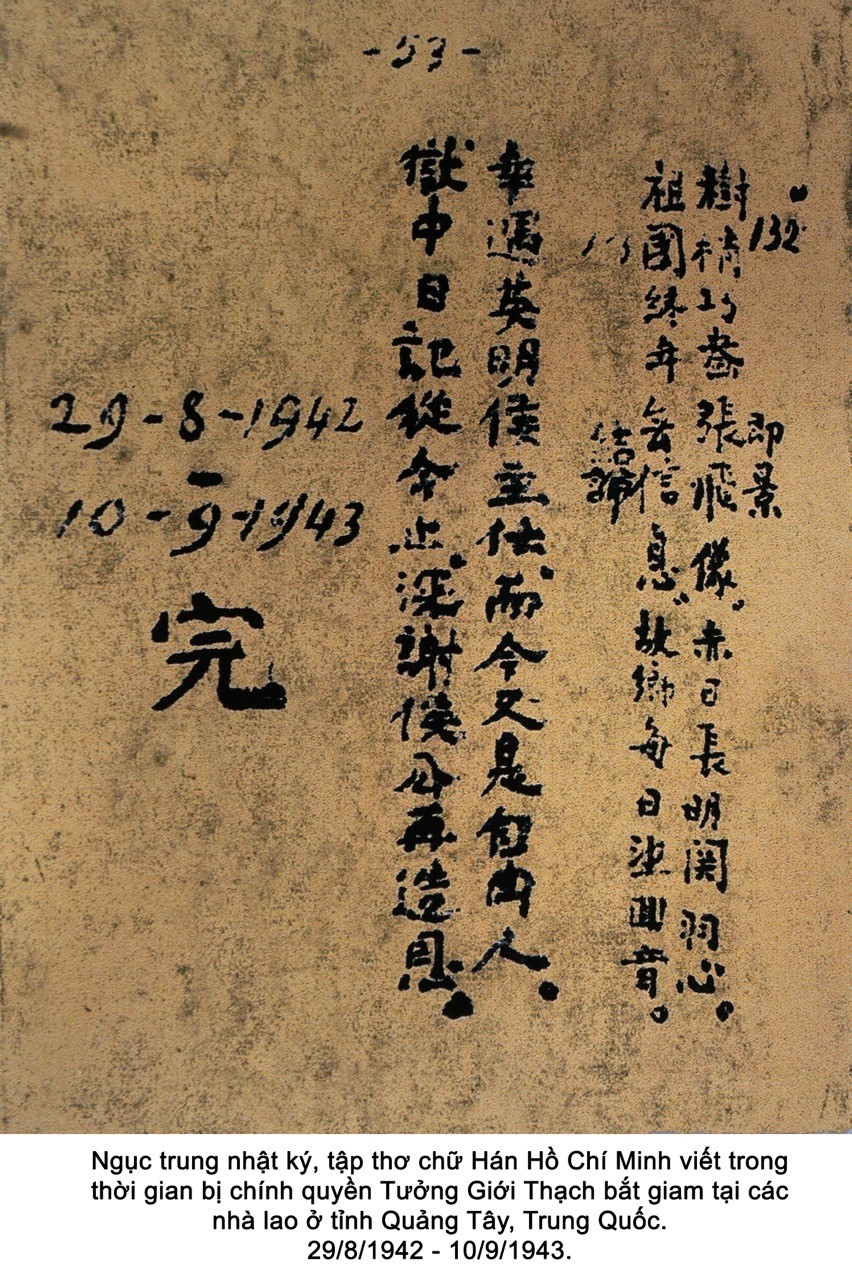 -53-
132
即景
樹梢巧畫張飛像。赤日長明関羽心。
祖國終年無信息，故鄉每日望回音。
結論
幸遇英明侯主任，而今又是自由人。
獄中日記從今止。深謝侯公再造恩。
29-8-1942
10-9-1943
完
Ngục trung nhật ký, tập thơ chữ Hán Hồ Chí Minh viết trong
thời gian bị chính quyền Tưởng Giới Thạch bắt giam tại các
nhà lao ở tỉnh Quảng Tây, Trung Quốc.
29/8/1942 - 10/9/1943.